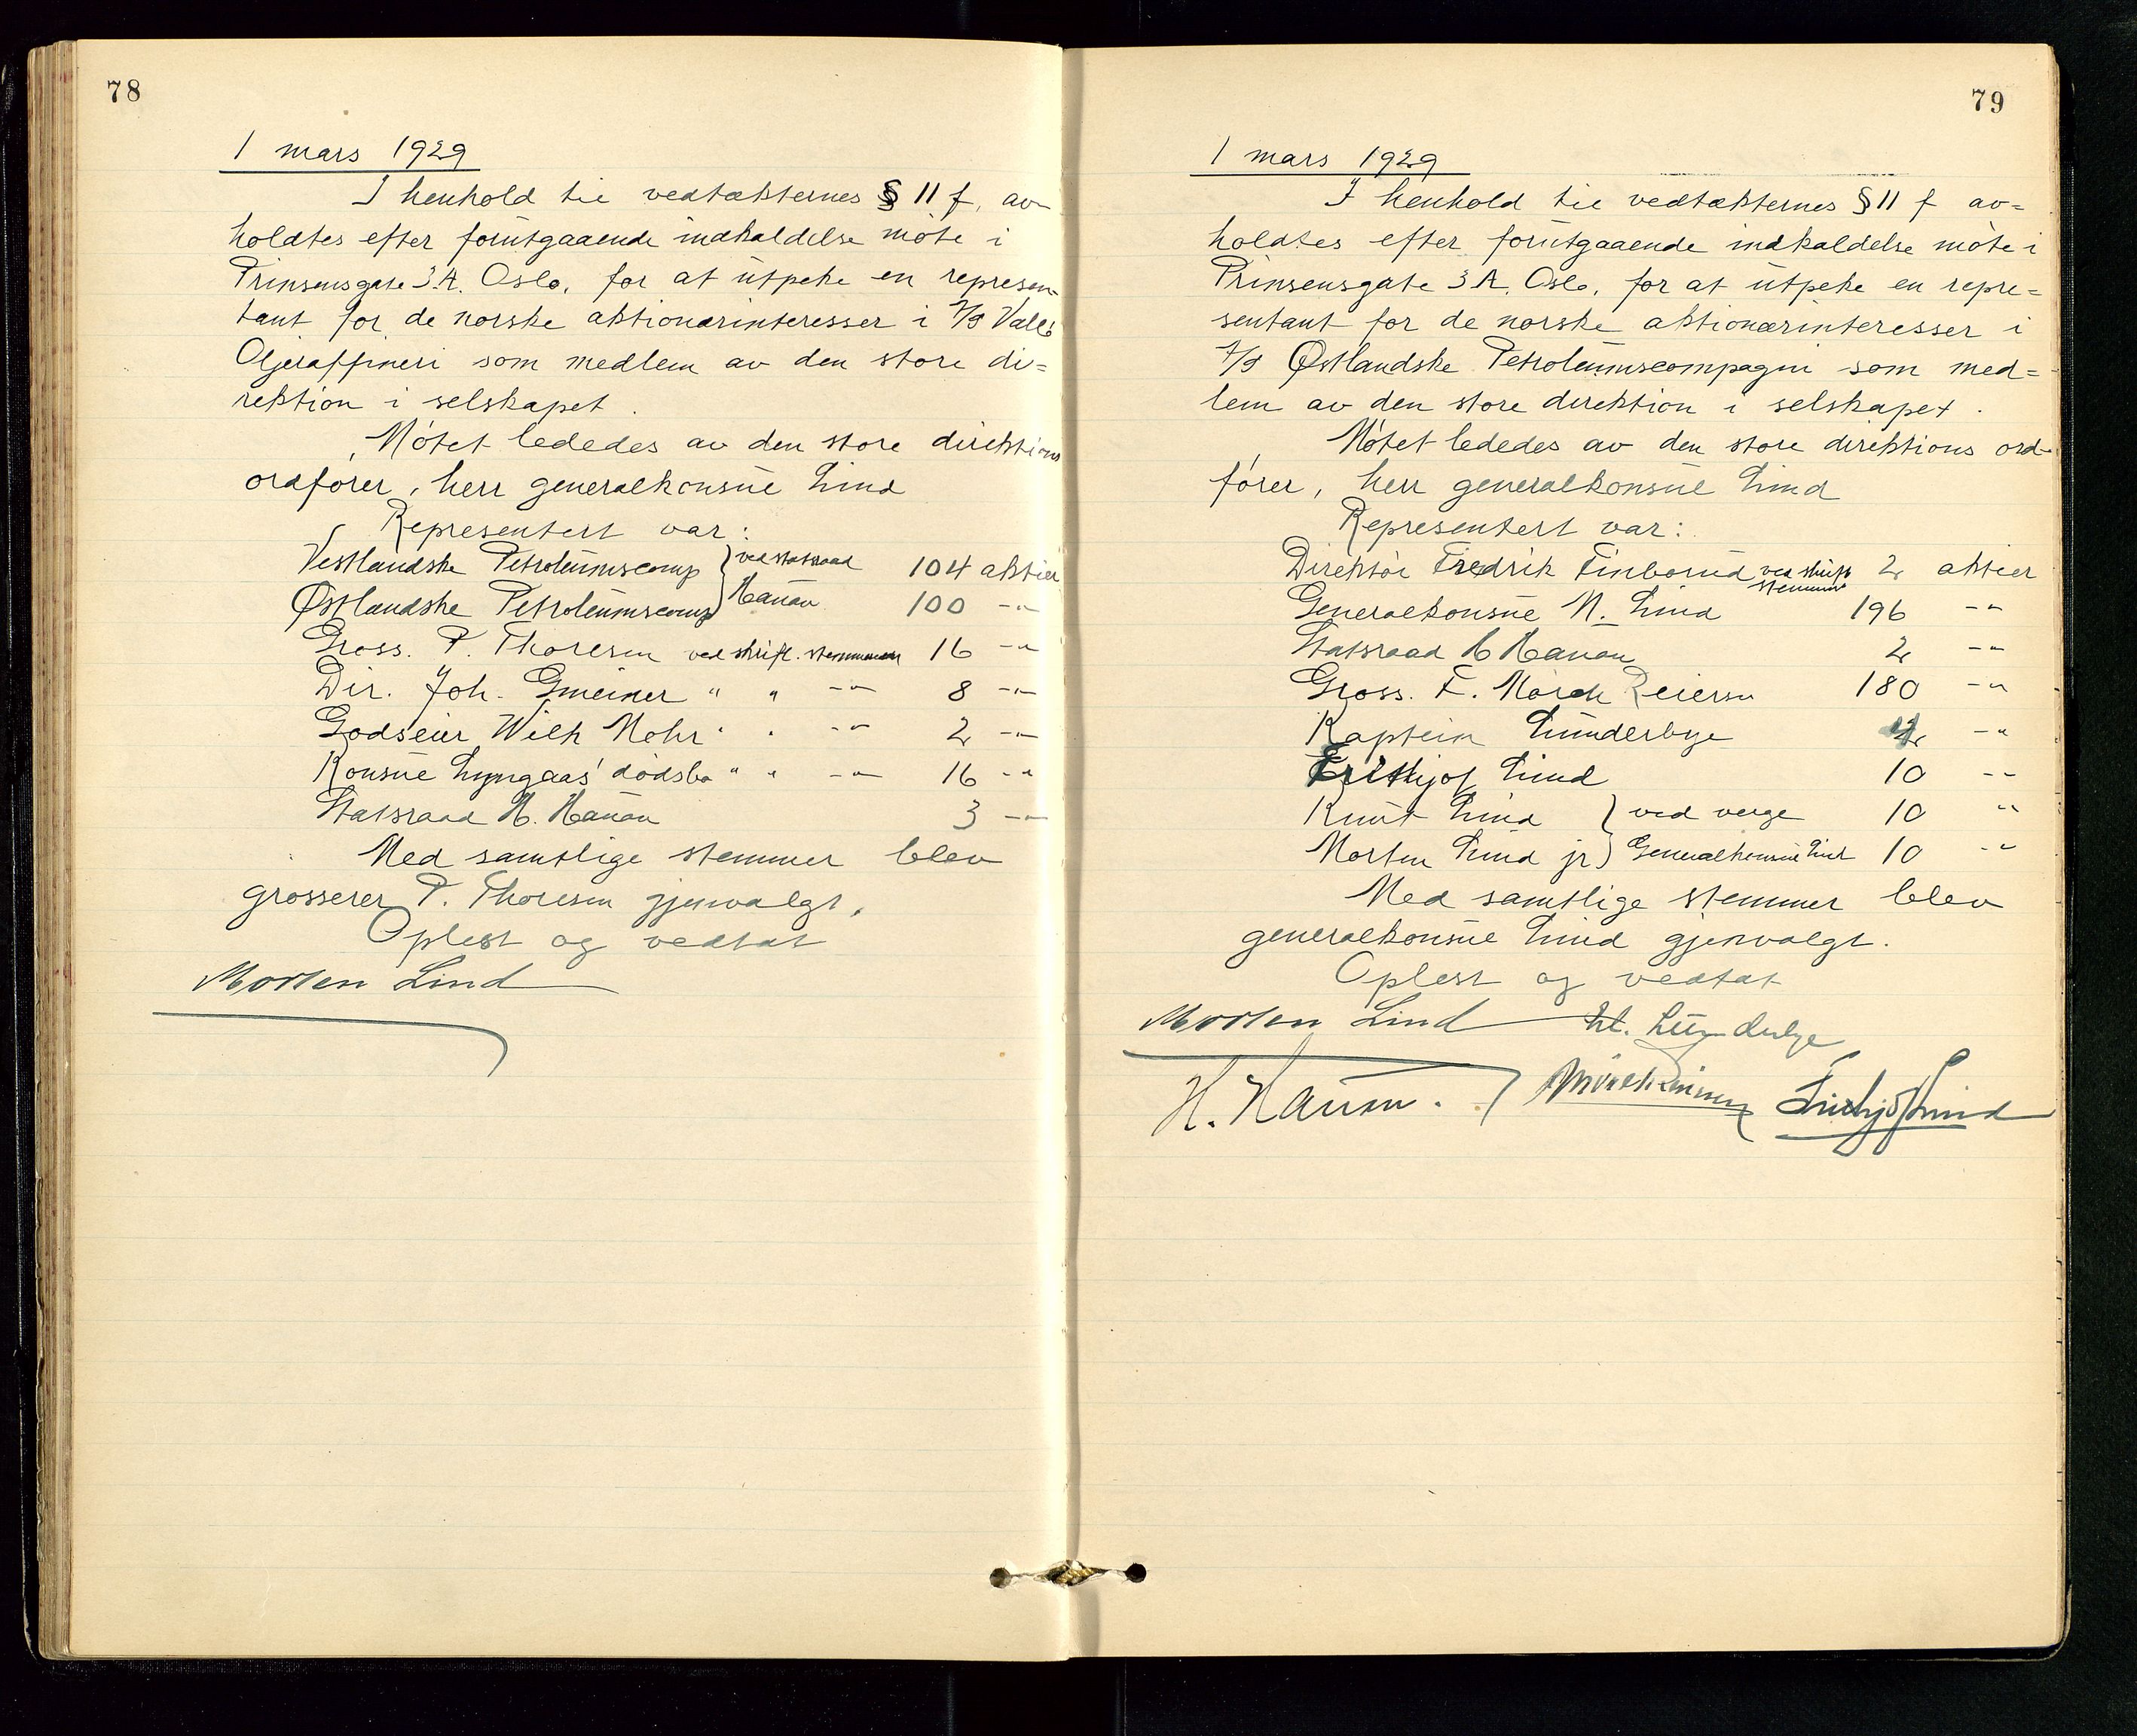 78
1 mars 1929
I henhold til vedtækternes § 11 f, av-
holdtes efter forutgaaende indkaldelse møte i
Prinsensgate 3.A. Oslo, for at utpeke en represen-
tant for de norske aktionærinteresser i A/S Vallø
Oljeraffineri som medlem av den store di=
rektion i selskapet.
Møtet lededes av den store direktions
ordfører, herr generalkonsul Lind
Representert var:
Vestlandske Petroleumscomp } ved statsraad 104 aktier
Østlandske Petroleumscomp } Hauan 100 -"-
Gross. P. Thoresen ved skriftl. stemmer 16 -"-
Dir. Joh. Gmeiner " " -"- 8 -"-
Godseier Wilh Mohr " " -"- 2 -"-
Konsul Lyngaas' dødsbo " " -"- 16 -"-
Statsraad H. Hauan 3 -"-
Med samtlige stemmer blev
grosserer P. Thoresen gjenvalgt.
Oplest og vedtat
Morten Lind
79
1 mars 1929
I henhold til vedtækternes § 11 f av=
holdtes efter forutgaaende indkaldelse møte i
Prinsensgate 3 A. Oslo, for at utpeke en repre=
sentant for de norske aktionærinteresser i
A/S Østlandske Petroleumscompagni som med=
lem av den store direktion i selskapet.
Møtet lededes av den store direktions ord-
fører, herr generalkonsul Lind
Representert var:
Direktør Fredrik Finborud ved skriftl stemmer 2 aktier
Generalkonsul M. Lind 196 -"-
Statsraad H Hauan 2 -"-
Gross. F. Mørch Reiersen 180 -"-
Kaptein Lunderbye -"-
Frithjof Lind 10 -"-
Knut Lind } ved verge 10 -"-
Morten Lind jr } Generalkonsul Lind 10 -"-
Med samtlige stemmer blev
generalkonsul Lind gjenvalgt.
Oplest og vedtat
Morten Lind Lunderbye
H. Hauan. Mørch Reiersen Frithjof Lind